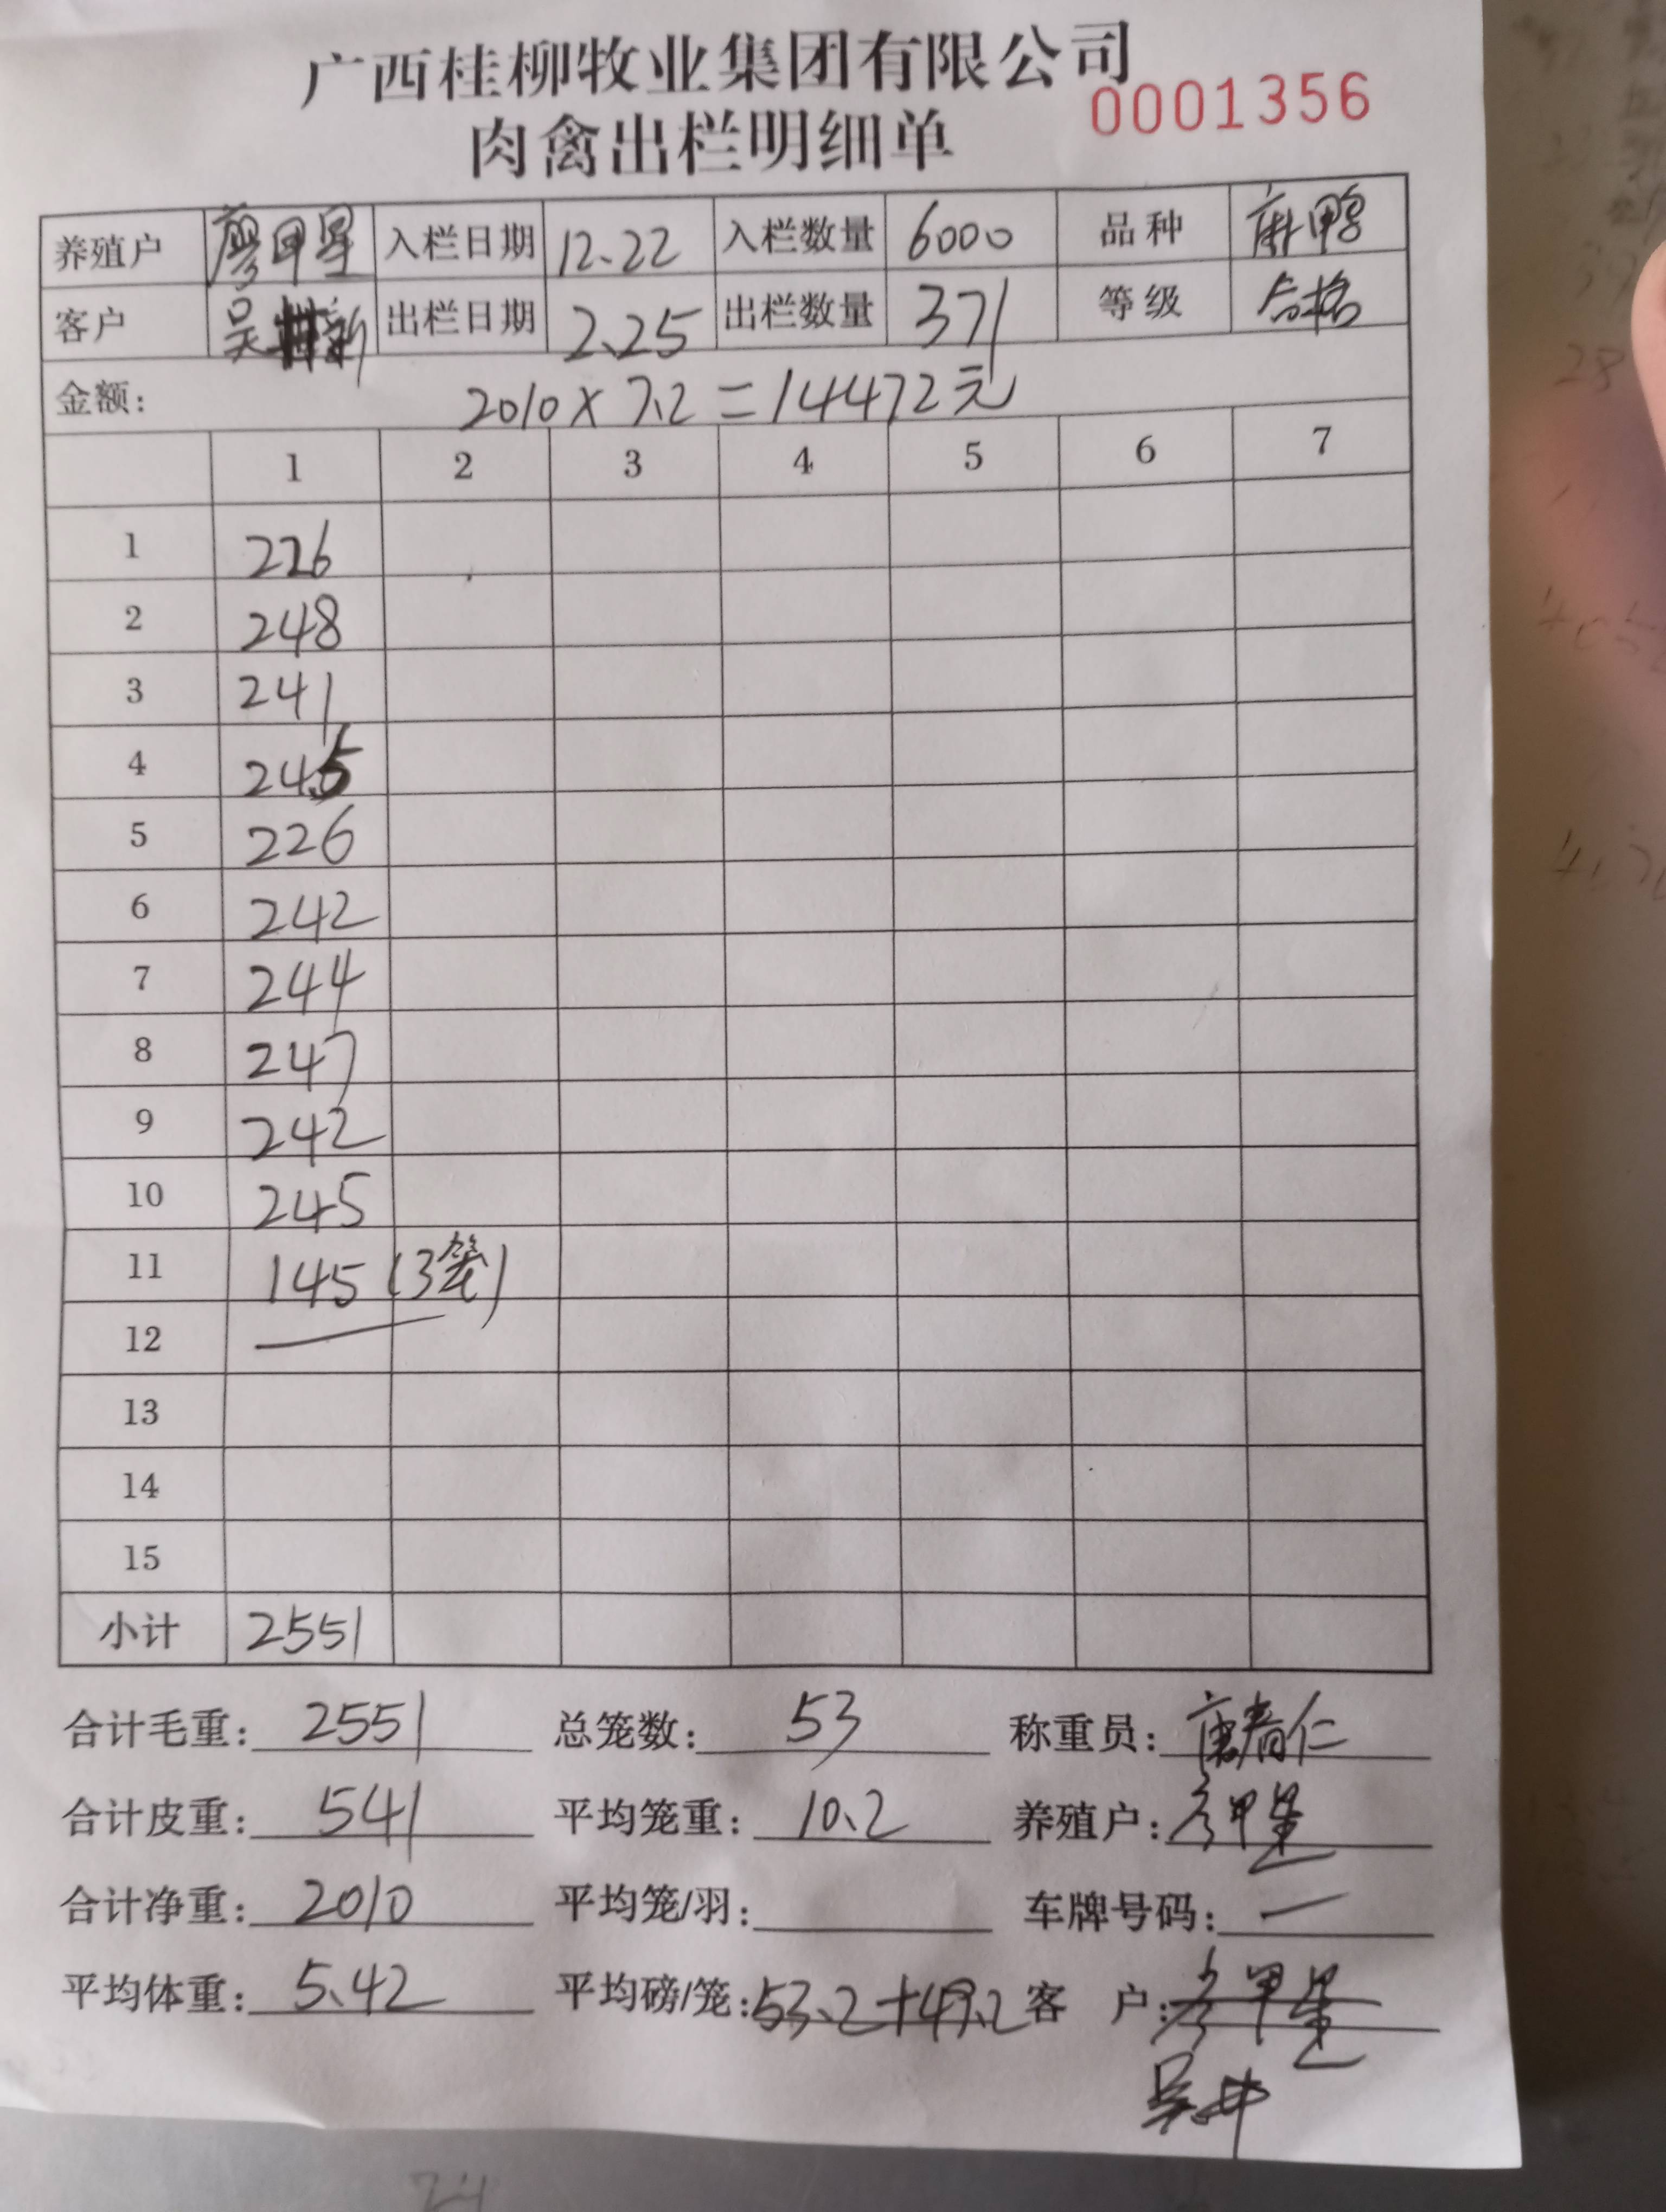 广西桂柳牧业集团有限公司
0001356
肉禽出栏明细单
养殖户 廖甲星 入栏日期 12.22 入栏数量 6000 品种 麻鸭
客户 吴 新 出栏日期 2.25 出栏数量 371 等级 合格
金额: 2010×7.2=14472元
1 2 3 4 5 6 7
1 226
2 248
3 241
4 245
5 226
6 242
7 244
8 247
9 242
10 245
11 145(3笼)
12
13
14
15
小计 2551
合计毛重: 2551 总笼数: 53 称重员: 唐春仁
合计皮重: 541 平均笼重: 10.2 养殖户: 廖甲星
合计净重: 2010 平均笼/羽: 车牌号码: 一
平均体重: 5.42 平均磅/笼: 53.2+49.2 客 户: 廖甲星
吴